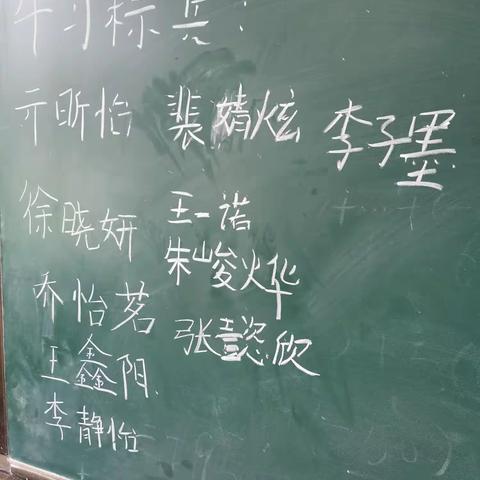 学习标兵:
亓昕怡 裴婧炫 李子墨
徐晓妍 王一诺
朱峻烨
乔怡茗 张懿欣
王鑫阳
李静怡